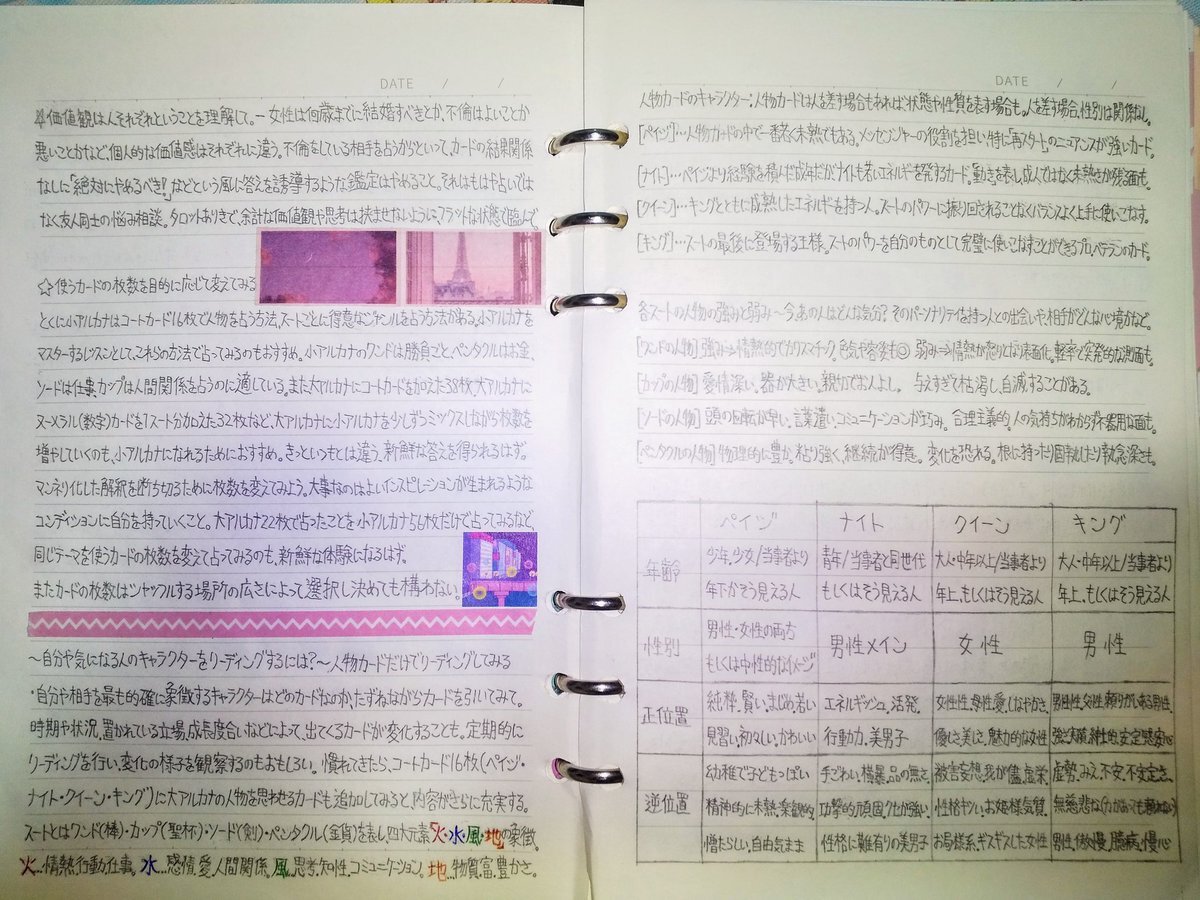 DATE / /
※価値観は人それぞれということを理解して。ー女性は何歳までに結婚すべきとか、不倫はよいことか
悪いことかなど、個人的な価値感はそれぞれに違う。不倫をしている相手を占うからといって、カードの結果関係
なしに「絶対にやめるべき!」などという風に答えを誘導するような鑑定はやめること。それはもはや占いでは
なく友人同士の悩み相談。タロットありきで、余計な価値観や思考は挟ませないように、フラットな状態で臨んで。
☆使うカードの枚数を目的に応じて変えてみる
とくに小アルカナはコートカード16枚で人物を占う方法、スートごとに得意なジャンルを占う方法がある。小アルカナを
マスターするレッスンとして、これらの方法で占ってみるのもおすすめ。小アルカナのワンドは勝負ごと、ペンタクルはお金、
ソードは仕事、カップは人間関係を占うのに適している。また大アルカナにコートカードを加えた38枚、大アルカナに
ヌーメラル(数字)カードを1スート分加えた32枚など、大アルカナに小アルカナを少しずつミックスしながら枚数を
増やしていくのも、小アルカナになれるためにおすすめ。きっといつもとは違う、新鮮な答えを得られるはず。
マンネリ化した解釈を断ち切るために枚数を変えてみよう。大事なのはよいインスピレーションが生まれるような
コンディションに自分を持っていくこと。大アルカナ22枚で占ったことを小アルカナ56枚だけで占ってみるなど、
同じテーマを使うカードの枚数を変えて占ってみるのも、新鮮な体験になるはず。
またカードの枚数はシャッフルする場所の広さによって選択し決めても構わない。
〜自分や気になる人のキャラクターをリーディングするには?〜人物カードだけでリーディングしてみる
・自分や相手を最も的確に象徴するキャラクターはどのカードなのか、たずねながらカードを引いてみて。
時期や状況、置かれている立場、成長度合いなどによって、出てくるカードが変化することも。定期的に
リーディングを行い、変化の様子を観察するのもおもしろい。慣れてきたら、コートカード16枚(ペイジ・
ナイト・クイーン・キング)に大アルカナの人物を思わせるカードも追加してみると、内容がさらに充実する。
スートとはワンド(棒)・カップ(聖杯)・ソード(剣)・ペンタクル(金貨)を表し、四大元素火・水・風・地の象徴。
火…情熱、行動、仕事。水…感情、愛、人間関係。風…思考、知性、コミュニケーション。地…物質、富、豊かさ。
DATE / /
人物カードのキャラクター:人物カードは人を差す場合もあれば状態や性質を表す場合も。人を差す場合、性別は関係なし。
[ペイジ]…人物カードの中で一番若く未熟でもある。メッセンジャーの役割を担い、特に「再スタート」のニュアンスが強いカード。
[ナイト]…ペイジより経験を積んだ成年だが、ナイトも若いエネルギーを発するカード。「動き」を表し、成人ではなく未熟さが残る面も。
[クイーン]…キングとともに成熟したエネルギーを持つ人。スートのパワーに振り回されることなくバランスよく上手に使いこなす。
[キング]…スートの最後に登場する王様。スートのパワーを自分のものとして完璧に使いこなすことができるプロ、ベテランのカード。
各スートの人物の強みと弱み〜今あの人はどんな気分?そのパーソナリティを持つ人との出会いや、相手がどんな心境かなど。
[ワンドの人物] 強み→情熱的でカリスマチック。色気や容姿も◎ 弱み→情熱が怒りとなり表面化。軽率で突発的な側面も。
[カップの人物] 愛情深い、器が大きい、親切でお人よし。 与えすぎて枯渇し、自滅することがある。
[ソードの人物] 頭の回転が早い、言葉遣い、コミュニケーションが巧み。合理主義的。人の気持ちがわからず不器用な面も。
[ペンタクルの人物] 物理的に豊か。粘り強く、継続が得意。変化を恐れる。根に持ったり固執したり執念深さも。
ペイジ ナイト クイーン キング
年齢 少年、少女/当事者より年下かそう見える人 青年/当事者と同世代もしくはそう見える人 大人・中年以上/当事者より年上、もしくはそう見える人 大人・中年以上/当事者より年上、もしくはそう見える人
性別 男性・女性の両方もしくは中性的なイメージ 男性メイン 女性 男性
正位置 純粋、賢い、まじめ、若い見習い、初々しい、かわいい エネルギッシュ、活発、行動力、美男子 女性性、母性愛、しなやかさ、優しさ、美しさ、魅力的な女性 男性性、父性、頼りがいある男性、強さ、実績、紳士的、安定感、安心
逆位置 幼稚で子どもっぽい 精神的に未熟、楽観的、憎たらしい、自由気まま 手ごわい、横暴、品の無さ、攻撃的、頑固、クセが強い、性格に難有りの美男子 被害妄想、我が儘、虚栄、性格キツい、お姫様気質、お局様系、ギスギスした女性 虚勢、みえ、不安、不安定さ、無慈悲な男性、傲慢、臆病、慢心